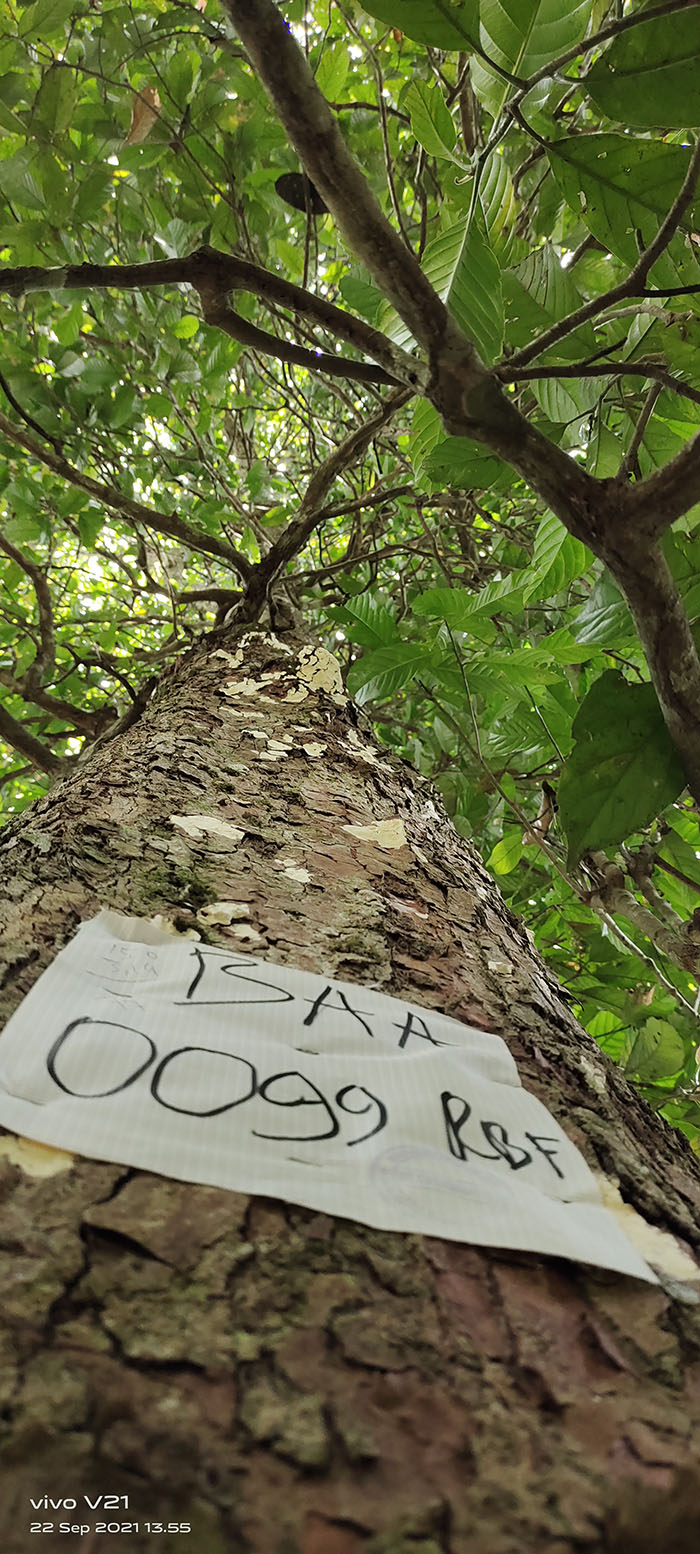 BAA
0099 RBF
vivo V21
22 Sep 2021 13.55